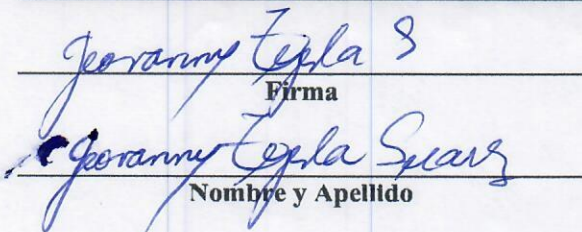 Jeovanny Tejeda S
Firma
Jeovanny Tejeda Suarez
Nombre y Apellido